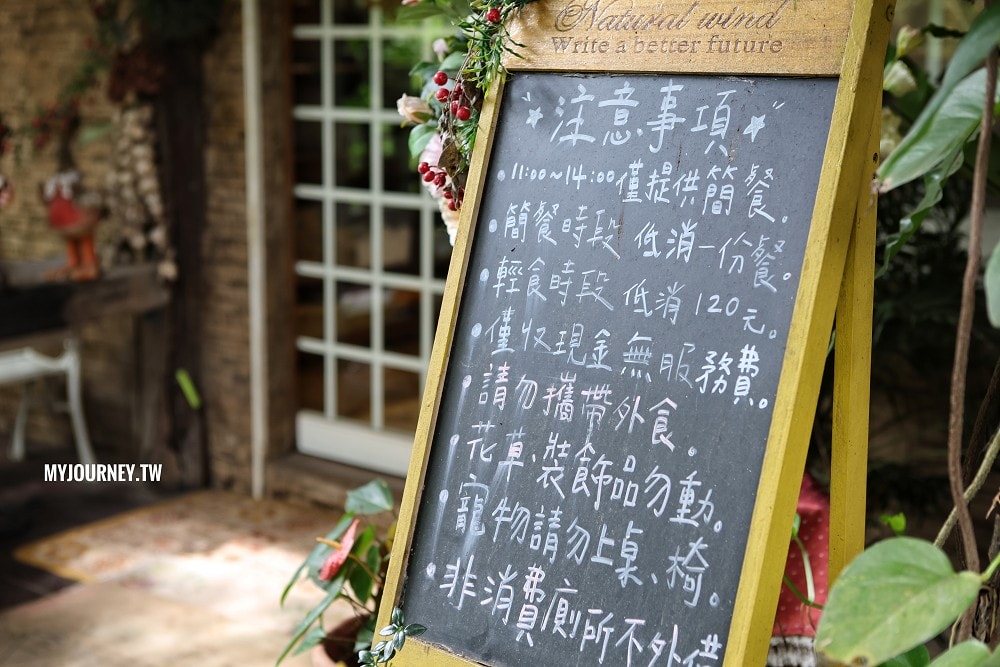 Natural wind
Write a better future
注意事項
•11:00~14:00僅提供簡餐。
•簡餐時段 低消一份餐。
•輕食時段 低消120元。
•僅收現金無服務費。
•請勿攜帶外食。
•花草、裝飾品勿動。
•寵物請勿上桌、椅。
•非消費廁所不外借
MYJOURNEY.TW